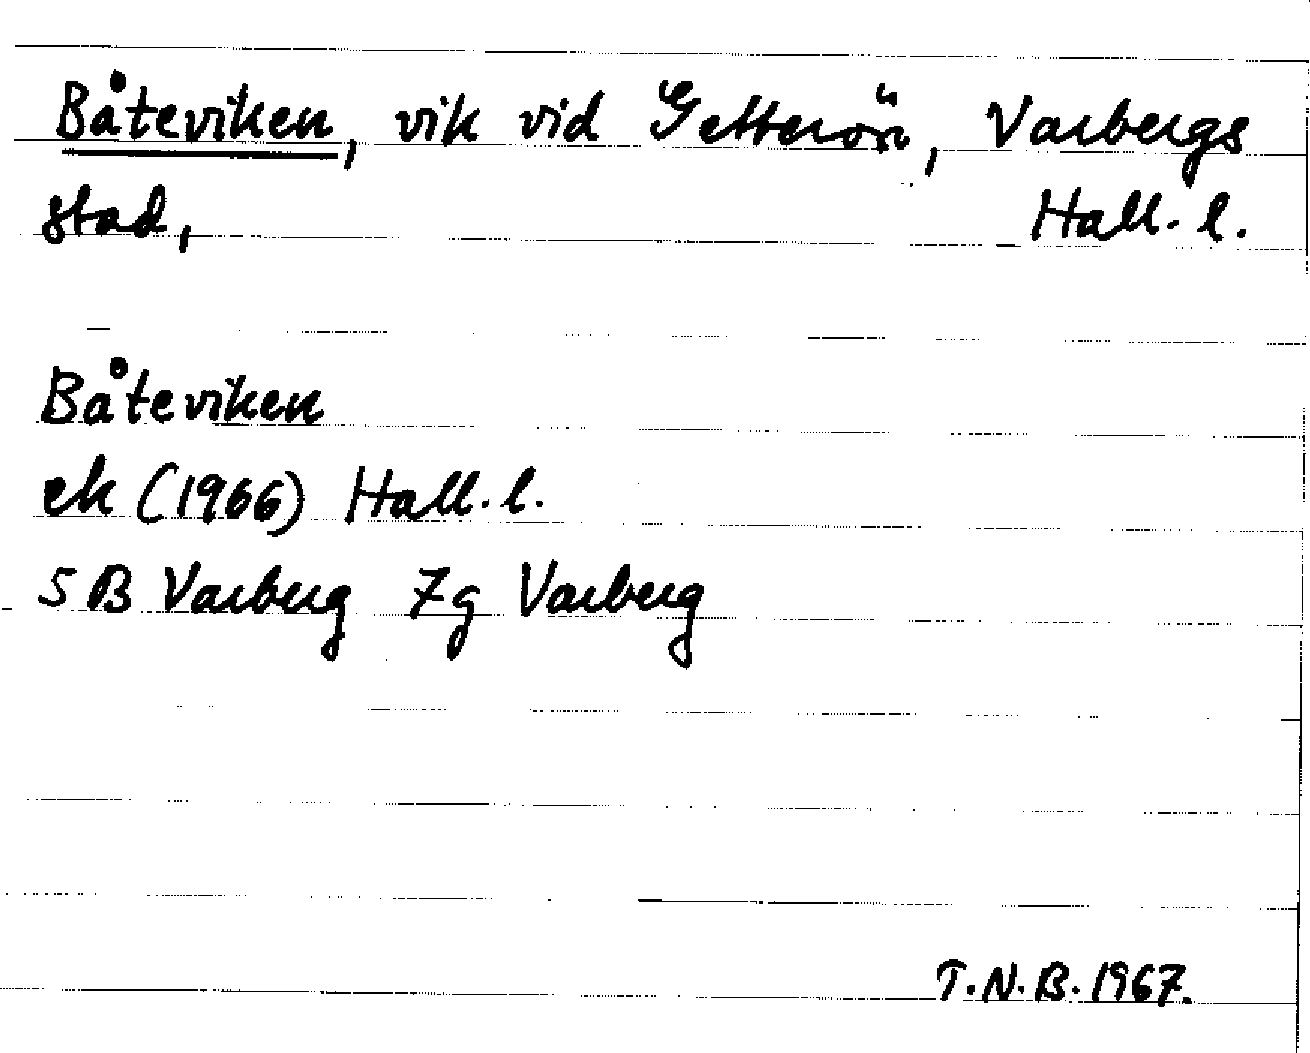 Båteviken, vik vid Getterön, Varbergs
stad, Hall. l.
Båteviken
ek (1966) Hall. l.
5 B Varberg 7g Varberg
T.N.B. 1967.